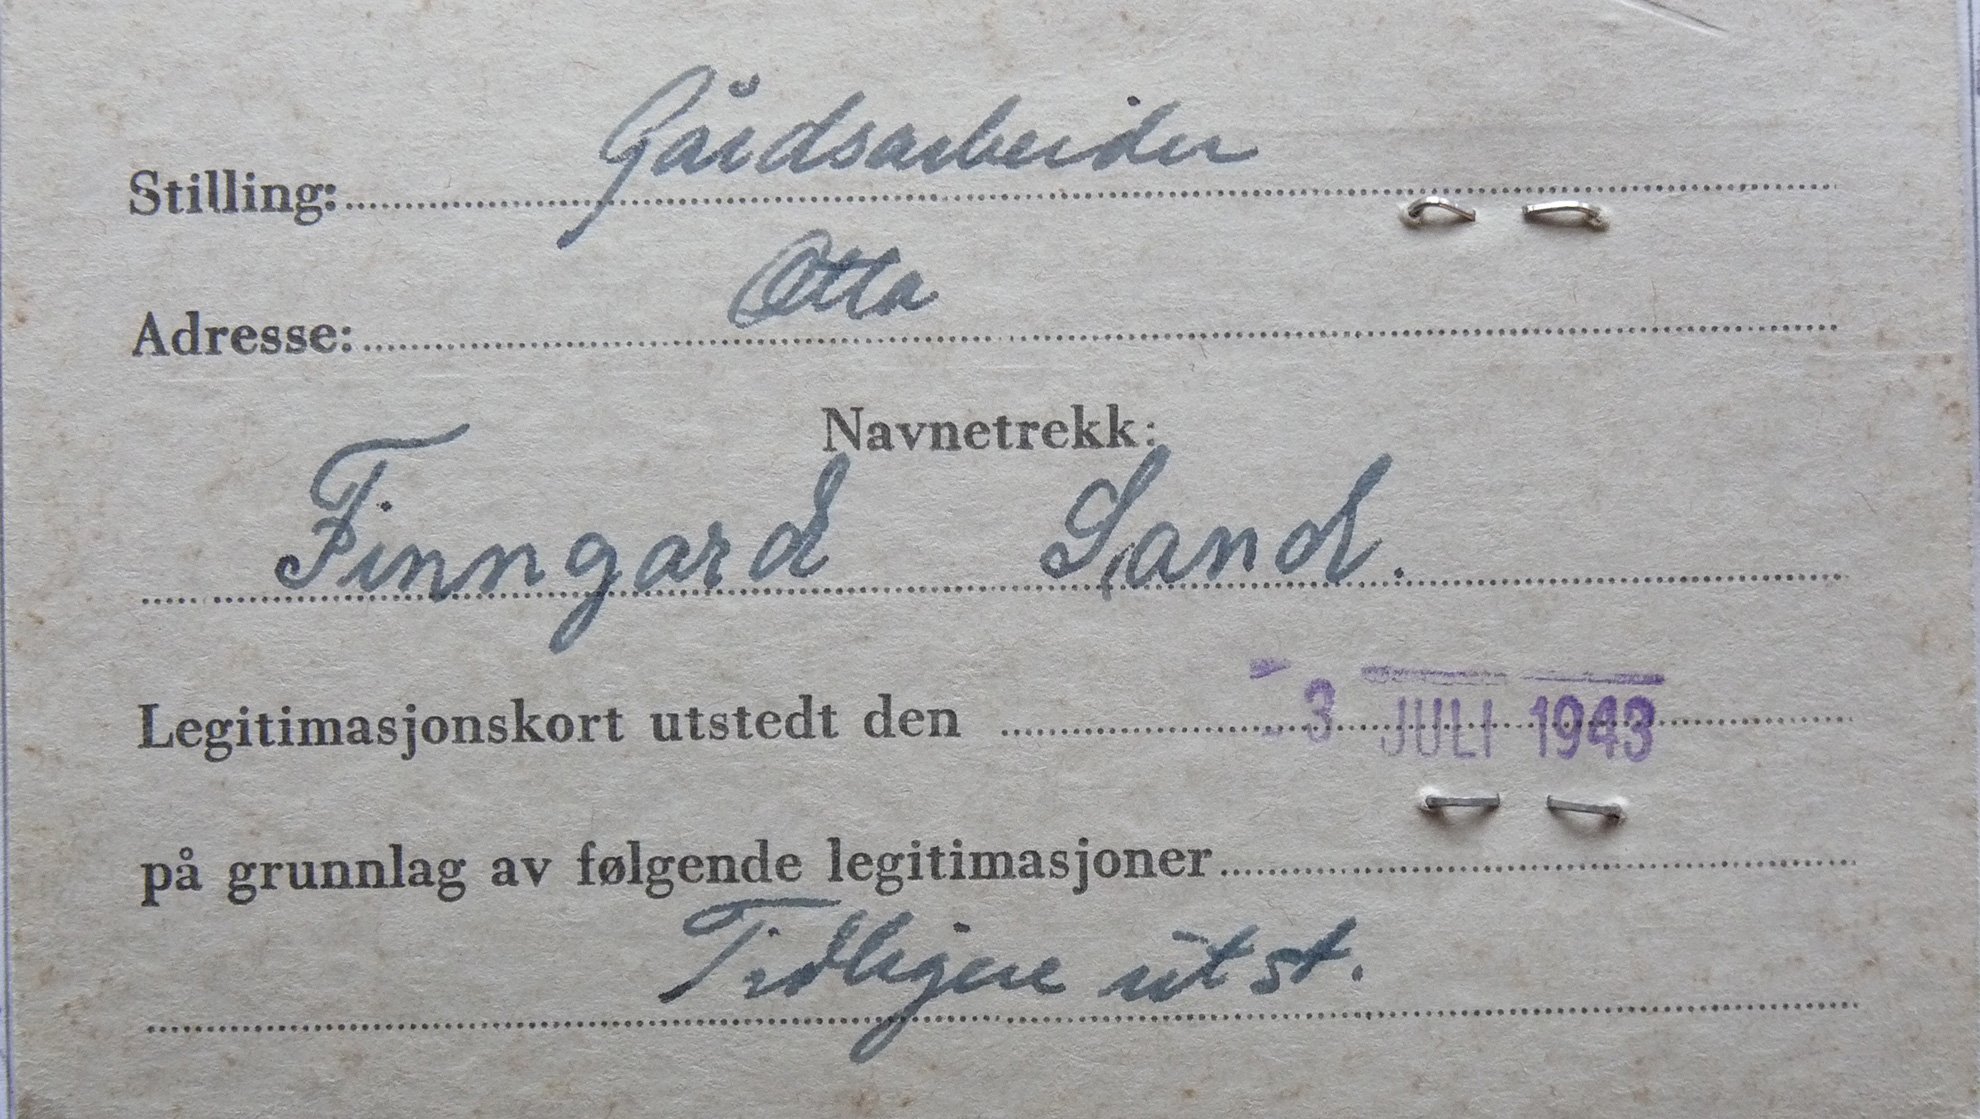 Stilling: Gårdsarbeider
Adresse: Otta
Navnetrekk:
Finngard Sand.
Legitimasjonskort utstedt den - 3 JULI 1943
på grunnlag av følgende legitimasjoner
Tidligere utst.